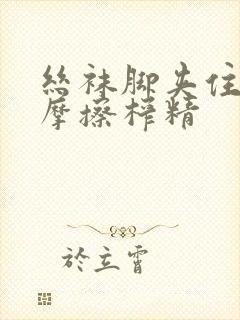 丝袜脚夹住
摩擦榨精
於立霄